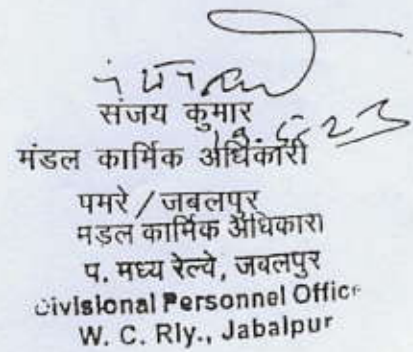 संजय कुमार
मंडल कार्मिक अधिकारी
पमरे / जबलपुर
मडल कार्मिक अधिकारी
प. मध्य रेल्वे, जबलपुर
Divisional Personnel Officer
W. C. Rly., Jabalpur